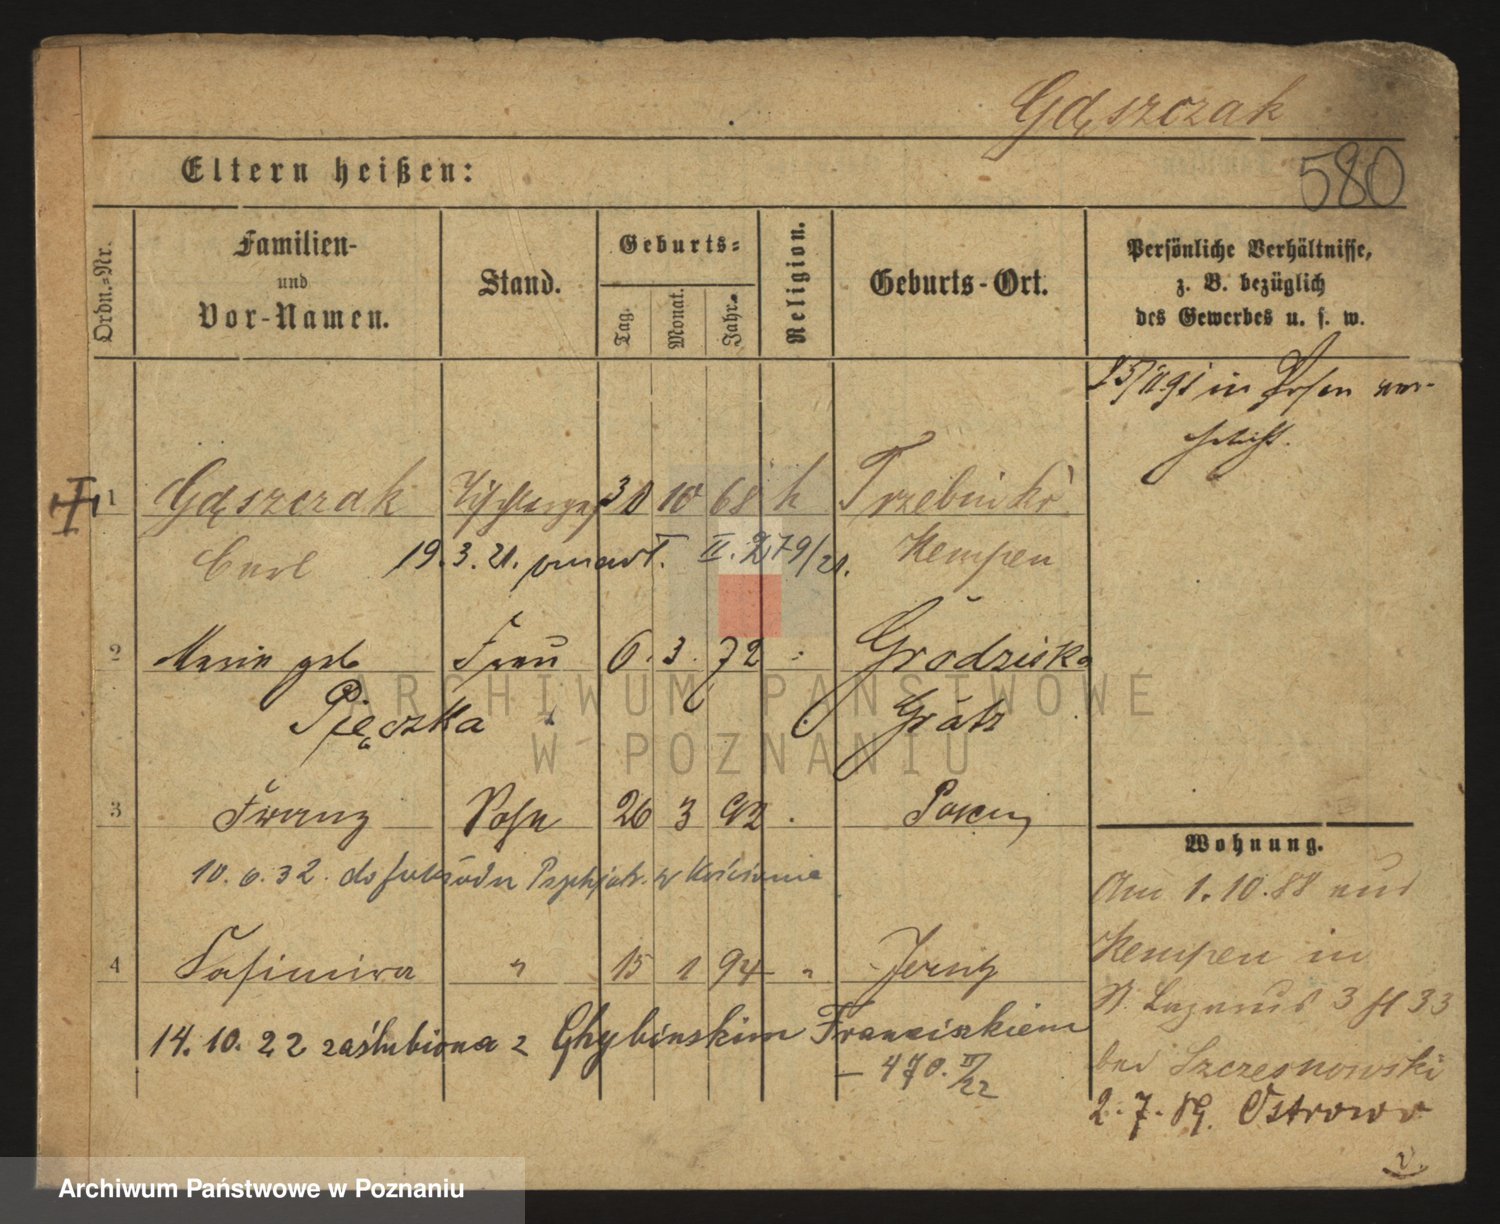 Gąszczak
580
Eltern heißen:
Ordn.-Nr.
Familien-
und
Vor-Namen.
Stand.
Geburts-
Tag.
Monat.
Jahr.
Religion.
Geburts-Ort.
Persönliche Verhältnisse,
z. B. bezüglich
des Gewerbes u. s. w.
in Posen ver-
1 Gąszczak 30 10 68 k Trzebinki
Carl 19.3.21. zmarł. II. 279/21. Kempen
2 Maria geb Frau 6. 3. 72 Grodziska
Pięczka Grätz
3 Franz Sohn 26 3 92 Posen
10.6.32. do Psychjatr. w Kościanie
4 Kasimira " 15 1 94 " Jersitz
14.10.22 zaślubiona z Chybińskim Franciszkiem
– 470. II/22
Wohnung.
Am 1.10.88 aus
Kempen in
St. Lazarus 3 H 33
bei Szczesnowski
2.7.89. Ostrowo
v.
ARCHIWUM PAŃSTWOWE
W POZNANIU
Archiwum Państwowe w Poznaniu